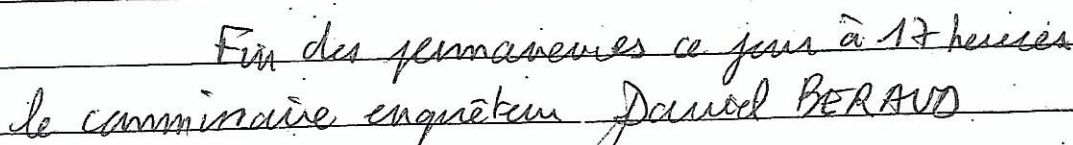 Fin des permanences ce jour à 17 heures
le commissaire enquêteur Daniel BERAUD